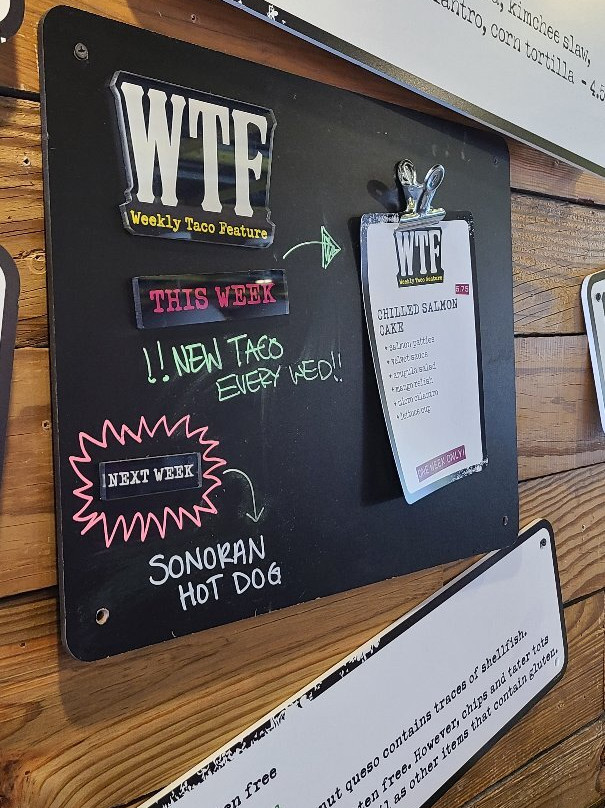 , kimchee slaw,
lantro, corn tortilla - 4.5
WTF
Weekly Taco Feature
THIS WEEK
!!NEW TACO
EVERY WED!!
NEXT WEEK
SONORAN
HOT DOG
WTF
Weekly Taco Feature
5.75
CHILLED SALMON
CAKE
• salmon patties
• velvet sauce
• arugula salad
• mango relish
• micro cilantro
• lettuce cup
ONE WEEK ONLY!
en free
nut queso contains traces of shellfish.
ten free. However, chips and tater tots
ll as other items that contain gluten.